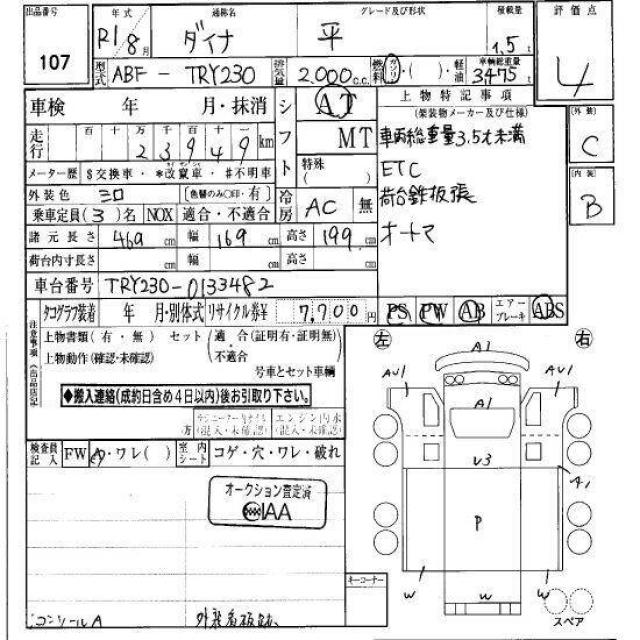 出品番号
107
年式
R1/8月
通称名
ダイナ
グレード及び形状
平
積載量
1.5t
評価点
4
型式
ABF-TRY230
排気量
2.000c.c.
燃料
ガソリン・( )・軽油
車輌総重量
3475
車検 年 月・抹消
走行
百 十 万 千 百 十 一
2 3 9 4 9 km
メーター歴 $交換車・*改竄車・#不明車
外装色
シロ
(色替のみ○印・有)
乗車定員(3)名 NOX 適合・不適合
シフト
AT
MT
特殊
( )
冷房
AC
無
諸元長さ 469cm 幅 169cm 高さ 199cm
荷台内寸長さ cm 幅 cm 高さ cm
車台番号 TRY230-0133482
上物特記事項
(架装物メーカー及び仕様)
車両総重量3.5t未満
ETC
荷台鉄板張
オートマ
外装
C
内装
B
タコグラフ装着 年 月・別体式 リサイクル券¥ 7,700円
PS PW AB エアーブレーキ ABS
注意事項
上物書類(有・無) セット(適合(証明有・証明無)
上物動作(確認・未確認) 不適合
号車とセット車輌
◆搬入連絡(成約日含め4日以内)後お引取り下さい。
エンジン内水
(混入・未確認)
検査員記入
FW A・ワレ( )
室内シート
コゲ・穴・ワレ・破れ
オークション査定済
IAA
キーコーナー
コンソールA
左
右
A1
AU1
AU1
A1
U3
A1
P
W
W
W
スペア